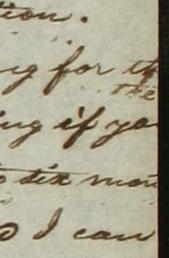 tion.
ng for th
the
ing if yo
o six mon
I can